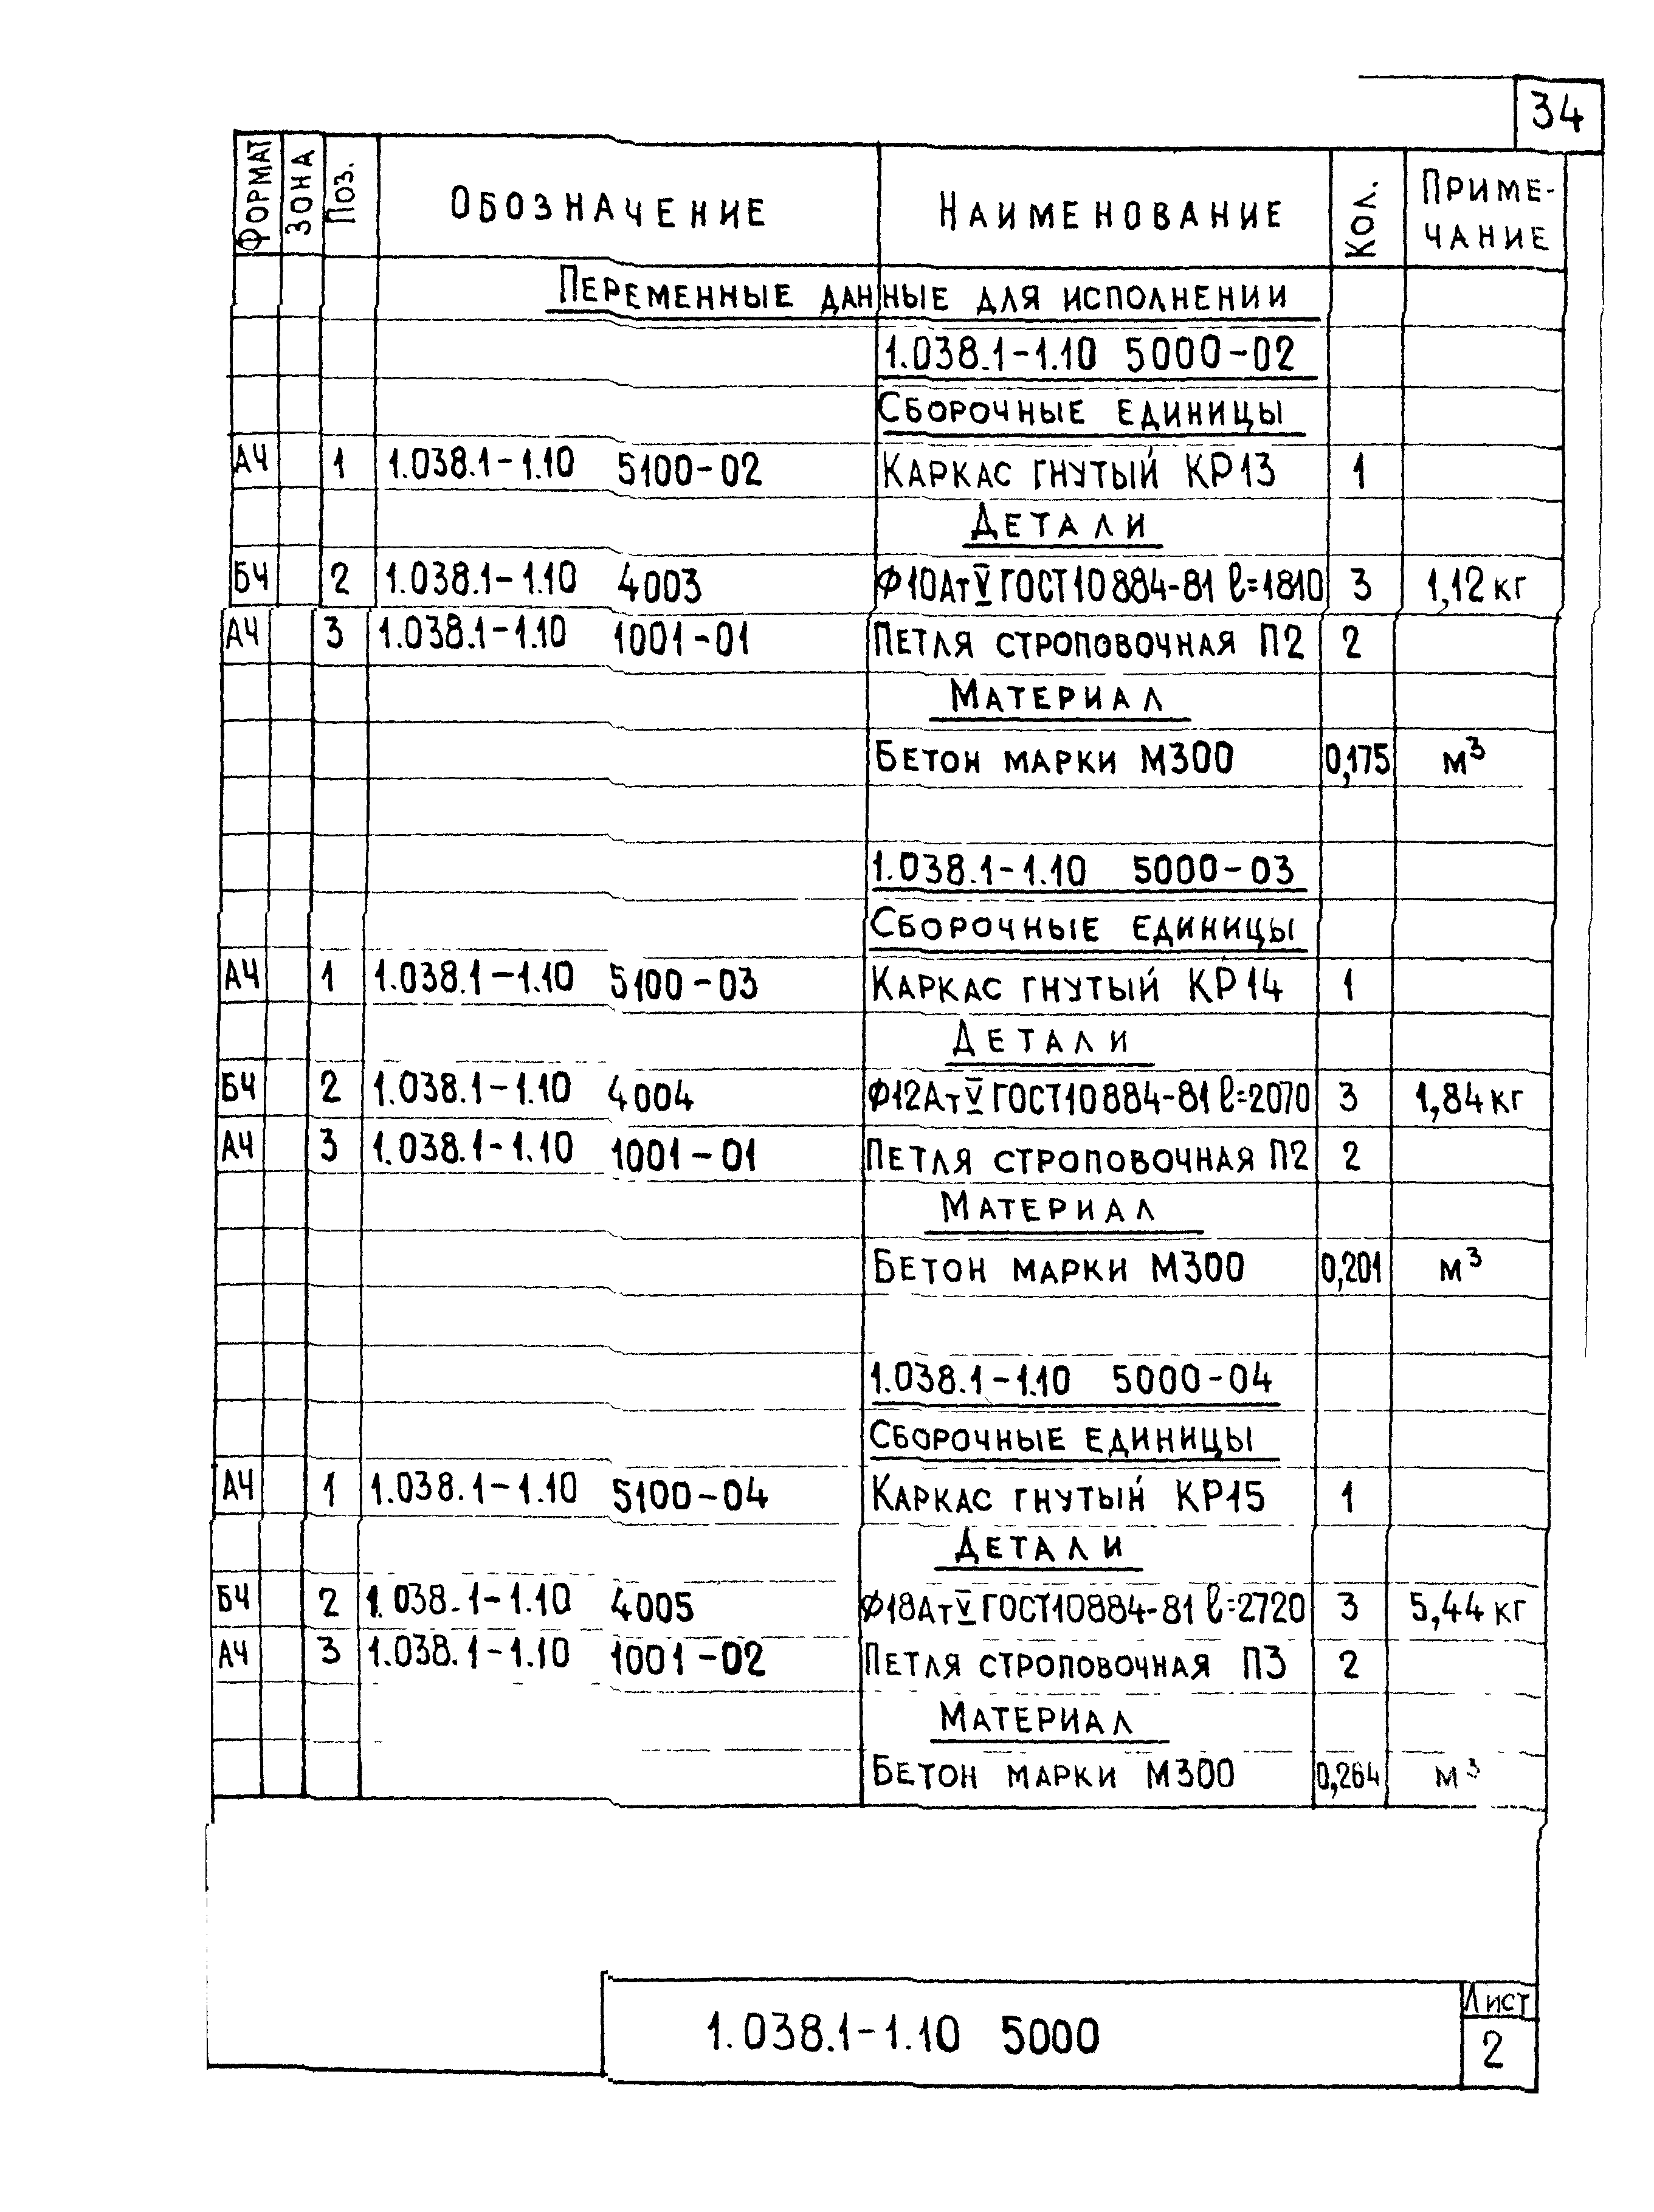 34
ФОРМАТ ЗОНА ПОЗ. ОБОЗНАЧЕНИЕ НАИМЕНОВАНИЕ КОЛ. ПРИМЕ-
ЧАНИЕ
ПЕРЕМЕННЫЕ ДАННЫЕ ДЛЯ ИСПОЛНЕНИИ
1.038.1-1.10 5000-02
СБОРОЧНЫЕ ЕДИНИЦЫ
АЧ 1 1.038.1-1.10 5100-02 КАРКАС ГНУТЫЙ КР13 1
ДЕТАЛИ
БЧ 2 1.038.1-1.10 4003 Ф10АтV ГОСТ10884-81 ℓ=1810 3 1,12 кг
АЧ 3 1.038.1-1.10 1001-01 ПЕТЛЯ СТРОПОВОЧНАЯ П2 2
МАТЕРИАЛ
БЕТОН МАРКИ М300 0,175 м³
1.038.1-1.10 5000-03
СБОРОЧНЫЕ ЕДИНИЦЫ
АЧ 1 1.038.1-1.10 5100-03 КАРКАС ГНУТЫЙ КР14 1
ДЕТАЛИ
БЧ 2 1.038.1-1.10 4004 Ф12АтV ГОСТ10884-81 ℓ=2070 3 1,84 кг
АЧ 3 1.038.1-1.10 1001-01 ПЕТЛЯ СТРОПОВОЧНАЯ П2 2
МАТЕРИАЛ
БЕТОН МАРКИ М300 0,201 м³
1.038.1-1.10 5000-04
СБОРОЧНЫЕ ЕДИНИЦЫ
АЧ 1 1.038.1-1.10 5100-04 КАРКАС ГНУТЫЙ КР15 1
ДЕТАЛИ
БЧ 2 1.038.1-1.10 4005 Ф18АтV ГОСТ10884-81 ℓ=2720 3 5,44 кг
АЧ 3 1.038.1-1.10 1001-02 ПЕТЛЯ СТРОПОВОЧНАЯ П3 2
МАТЕРИАЛ
БЕТОН МАРКИ М300 0,264 м³
1.038.1-1.10 5000
Лист
2